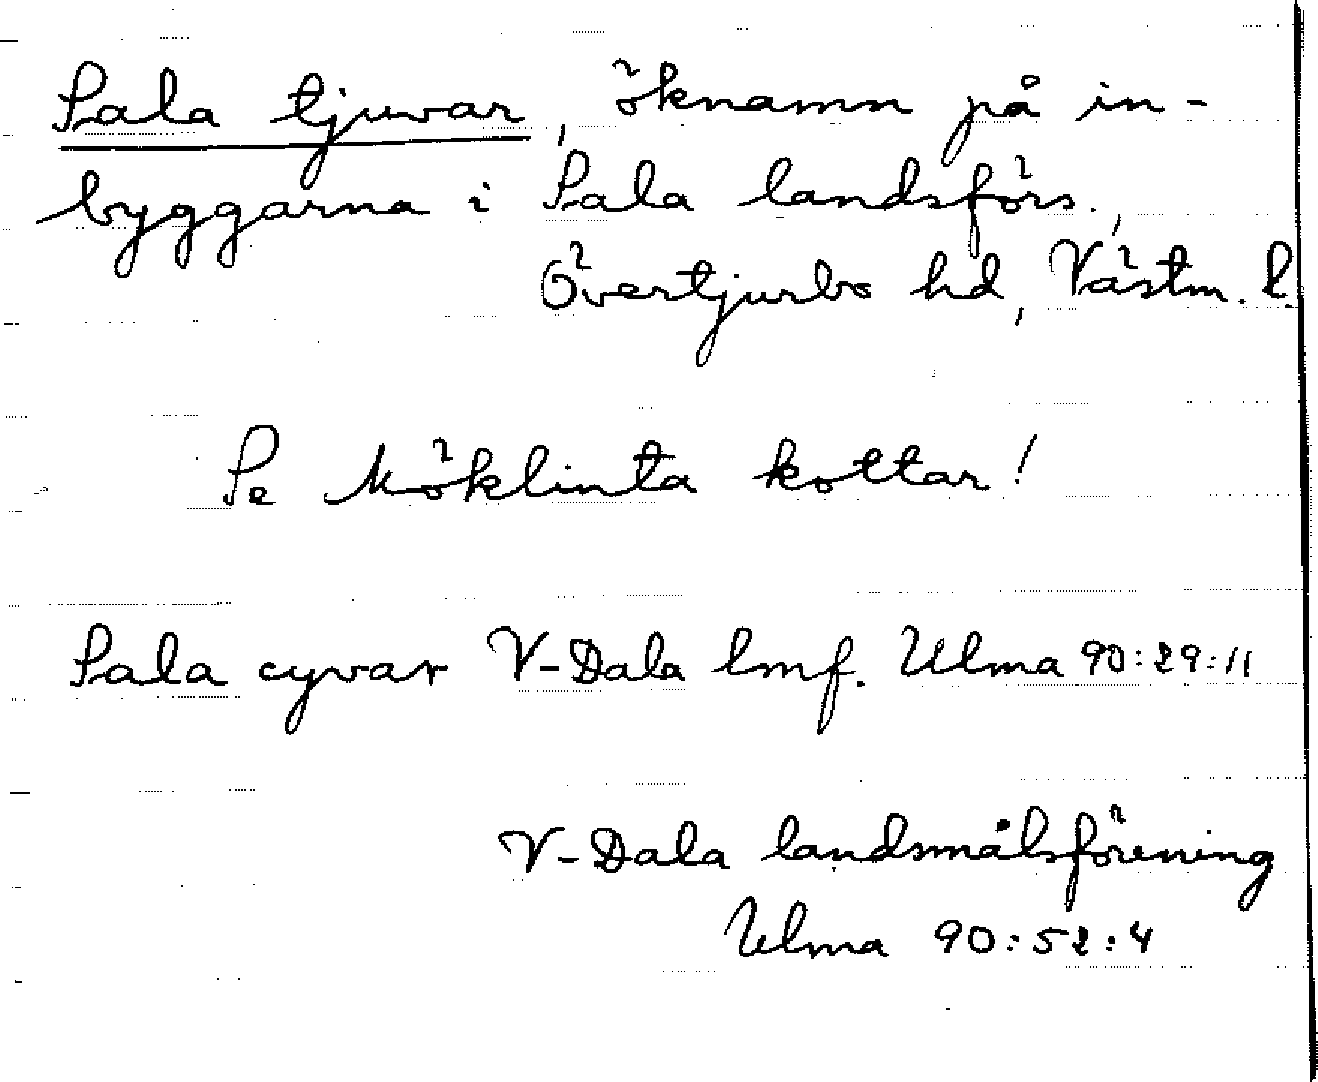 Sala tjuvar, öknamn på in-
byggarna i Sala landsförs.,
Övertjurbo hd, Västm. l.
Se Möklinta kottar!
Sala cyvar V-Dala lmf. Ulma 90:29:11
V-Dala landsmålsförening
Ulma 90:52:4